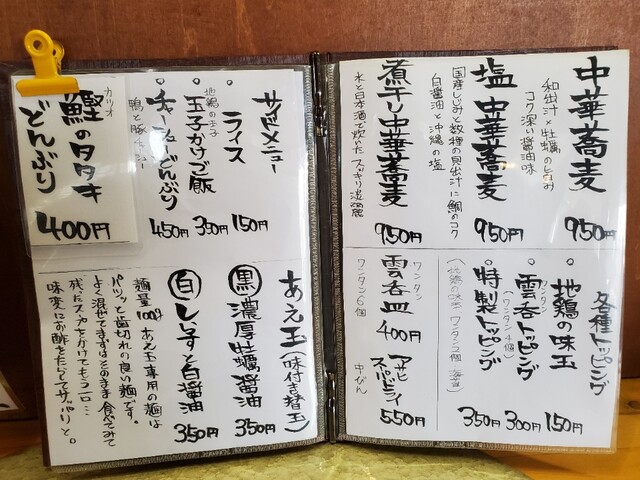 中華蕎麦
和出汁×牡蠣の旨み
コク深い醤油味
950円
塩中華蕎麦
国産しじみと数種の貝出汁に鯛のコク
白醤油と沖縄の塩
950円
煮干し中華蕎麦
水と日本酒で炊いたスッキリ淡麗
950円
各種トッピング
地鶏の味玉
150円
雲呑トッピング
ワンタン
(ワンタン4個)
300円
特製トッピング
350円
雲呑皿
ワンタン
ワンタン6個
400円
アサヒ
スーパードライ
中びん
550円
サイドメニュー
ライス
150円
地鶏の玉子
玉子かけご飯
350円
チャーシューどんぶり
鴨と豚チャーシュー
450円
カツオ
鰹のタタキ
どんぶり
400円
あえ玉(味付き替玉)
黒 濃厚牡蠣醤油
350円
白 しらすと白醤油
350円
麺量100g あえ玉専用の麺は
パツッと歯切れの良い麺です。
よく混ぜてまずはそのまま食べてみて
残ったスープをかけてもう一口…
味変にお酢をたらしてサッパリと。